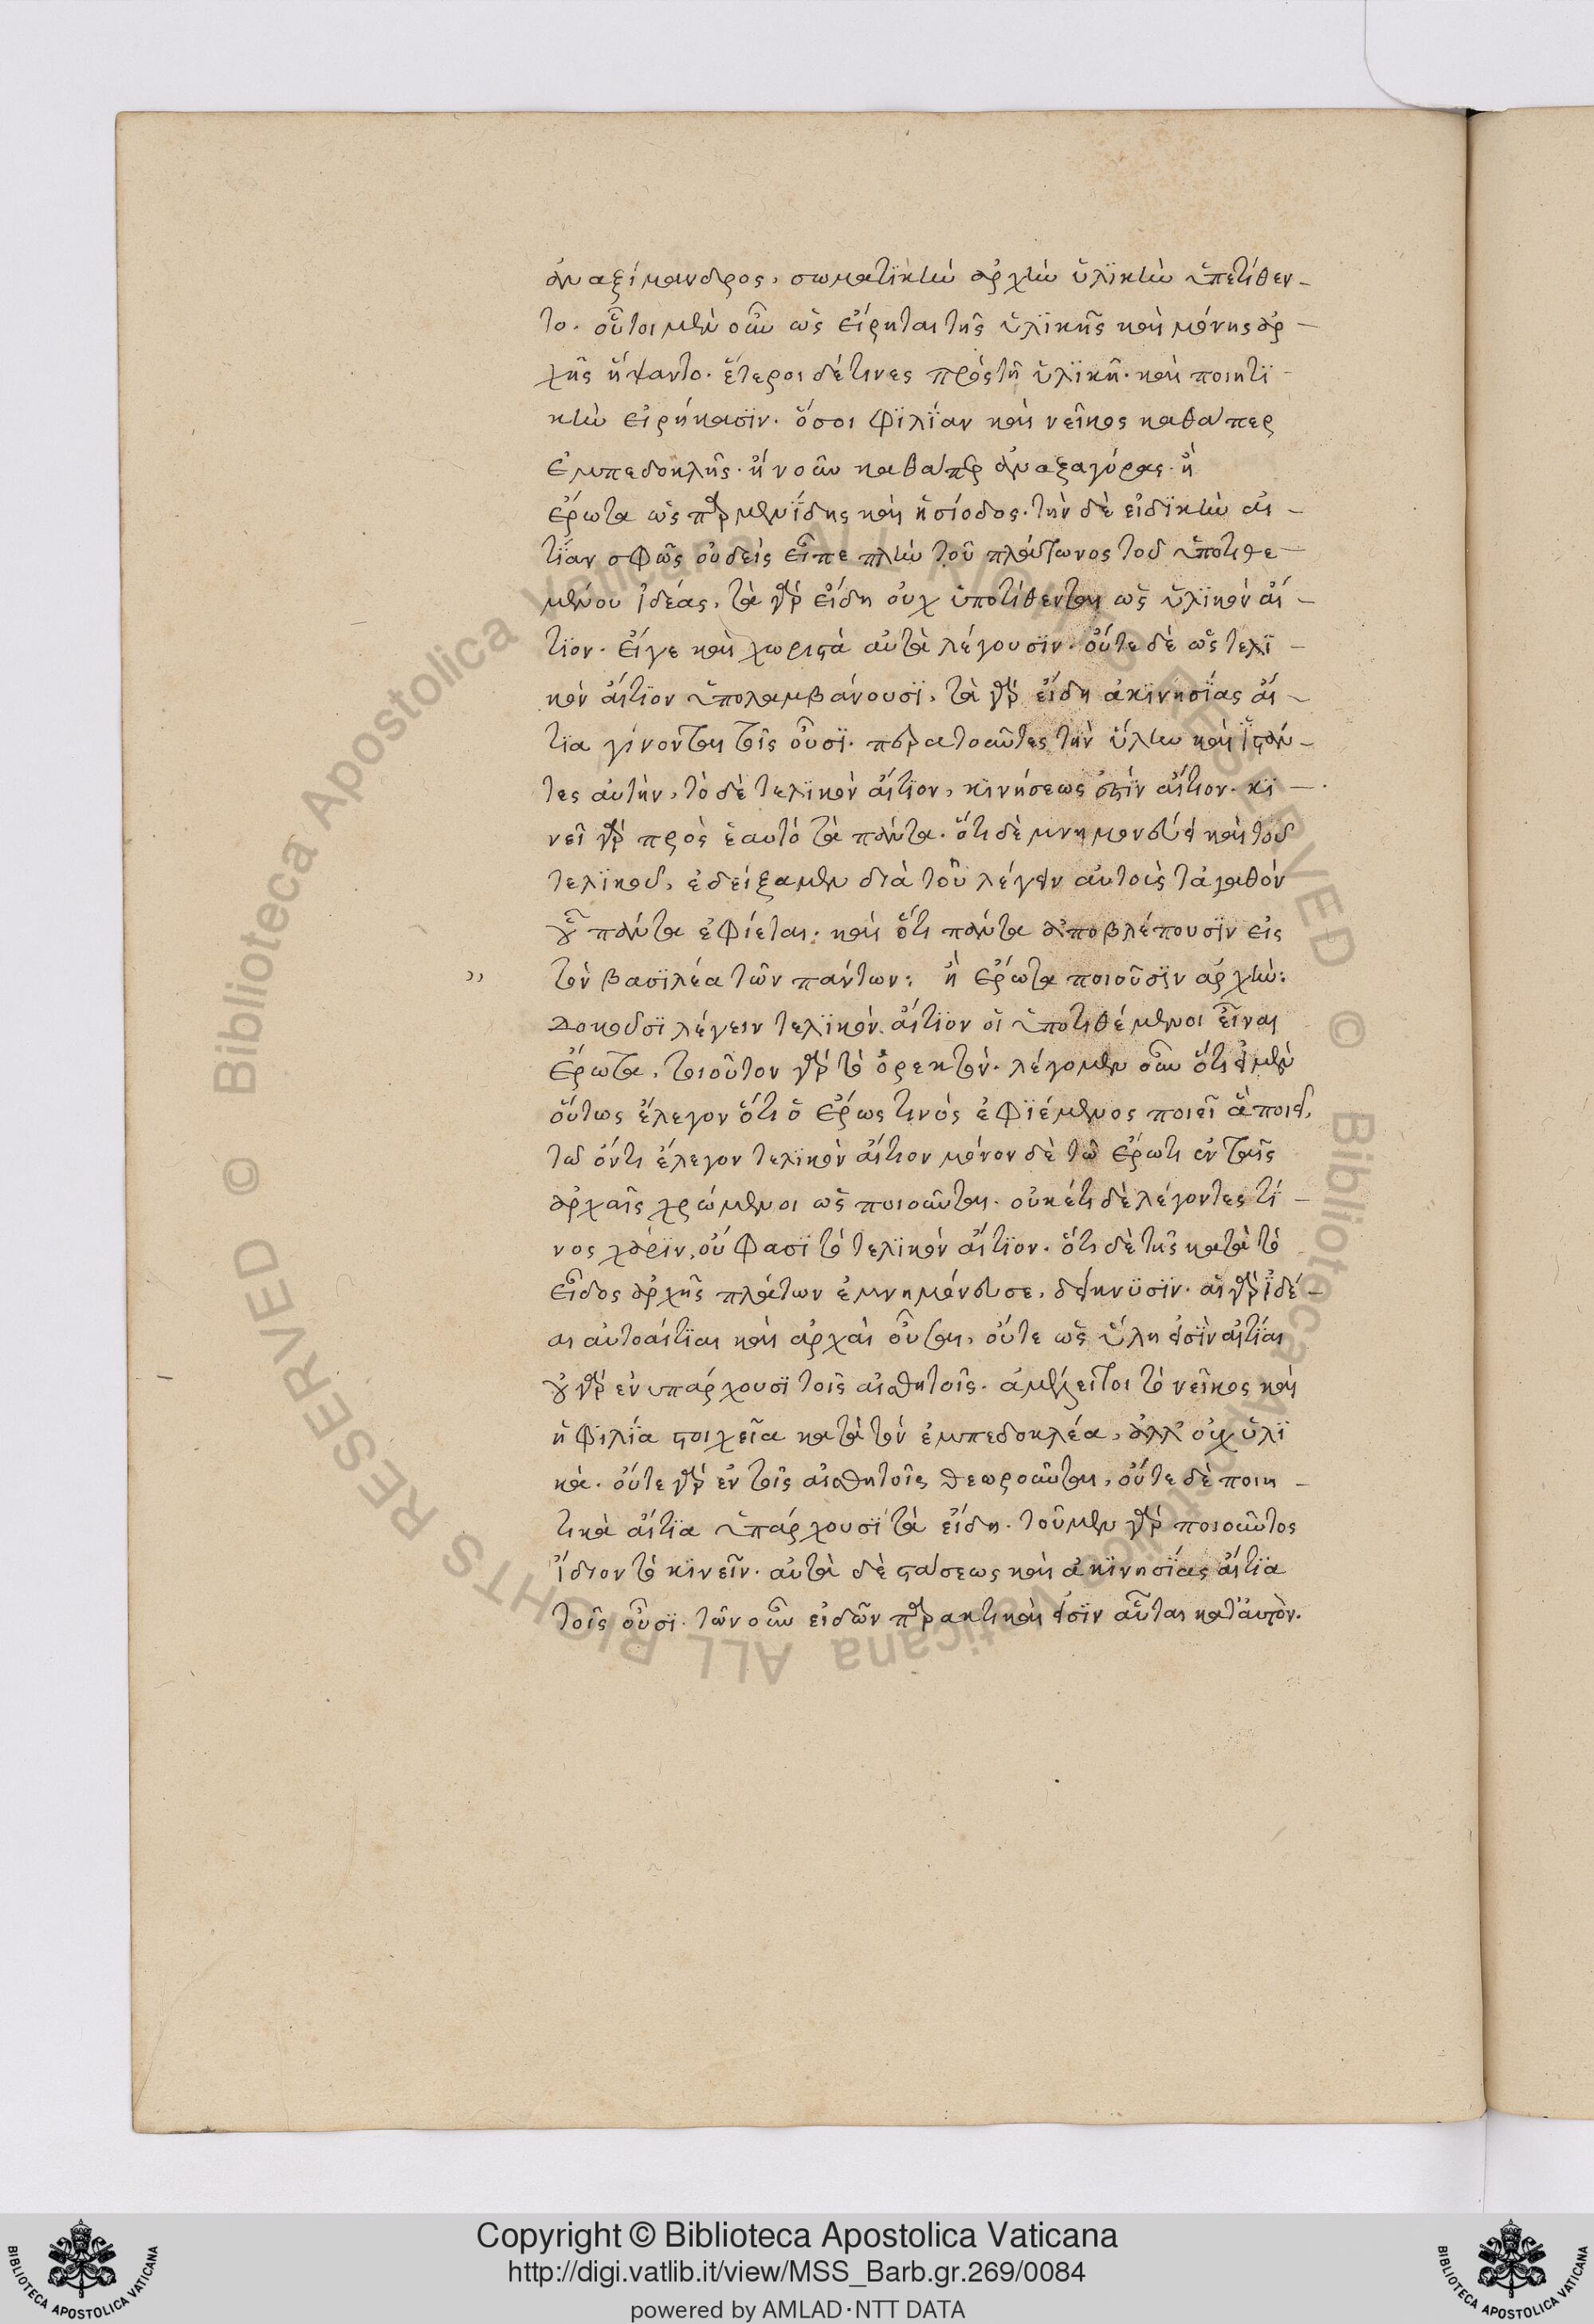 ἀναξίμανδρος, σωματϊκὴν ἀρχὴν ὑλϊκὴν ὑπετίθεν-
το. οὗτοι μὲν οὖν ὡς εἴρηται τῆς ὑλϊκῆς καὶ μόνης ἀρ-
χῆς ἥψαντο. ἕτεροι δέ τινες πρὸς τῆ ὑλϊκῆ. καὶ ποιητϊ
κὴν εἰρήκασϊν. ὅσοι φϊλϊαν καὶ νεῖκος καθάπερ
ἐμπεδοκλῆς. ἢ νοῦν καθάπερ ἀναξαγόρας. ἢ
ἔρωτα ὡς παρμενΐδης καὶ ἡσίοδος. τὴν δὲ εἰδϊκὴν αἰ-
τΐαν σφῶς οὐδεὶς εἶπε πλὴν τοῦ πλάτωνος τοῦ ὑποτιθε-
μένου ἰδέας, τὰ γὰρ εἴδη οὐχ ὑποτίθενται ὡς ὑλϊκὸν αἴ-
τϊον. εἴγε καὶ χωριστὰ αὐτὰ λέγουσϊν. οὔτε δὲ ὡς τελϊ-
κὸν αἴτϊον ὑπολαμβάνουσϊ, τὰ γὰρ εἴδη ἀκϊνησΐας αἴ-
τϊα γίνονται τοῖς οὖσϊ. περατοῦντες τὴν ὕλην καὶ ἱστάν-
τες αὐτὴν, τὸ δὲ τελϊκὸν αἴτϊον, κϊνήσεως ἐστὶν αἴτιον. κϊ-
νεῖ γὰρ πρὸς ἑαυτὸ τὰ πάντα. ὅτι δὲ μνημονεύει καὶ τοῦ
τελϊκοῦ, ἐδείξαμεν διὰ τοῦ λέγειν αὐτοὺς τἀγαθὸν
οὗ πάντα ἐφίεται. καὶ ὅτι πάντα ἀποβλέπουσϊν εἰς
,, τὸν βασϊλέα τῶν πάντων: ἢ ἔρωτα ποιοῦσϊν ἀρχὴν:
Δοκοῦσϊ λέγειν τελϊκὸν αἴτϊον οἱ ὑποτιθέμενοι εἶναι
ἔρωτα. τοιοῦτον γὰρ τὸ ὀρεκτόν. λέγομεν οὖν ὅτι εἰ μὲν
οὕτως ἔλεγον ὅτι ὁ ἔρως τινὸς ἐφϊέμενος ποιεῖ ἃ ποιεῖ,
τῶ ὄντι ἔλεγον τελϊκὸν αἴτιον μόνον δὲ τῶ ἔρωτι ἐν ταῖς
ἀρχαῖς χρώμενοι ὡς ποιοῦντι. οὐκέτι δὲ λέγοντες τί-
νος χάρϊν, οὔ φασϊ τὸ τελϊκὸν αἴτϊον. ὅτι δὲ τῆς κατὰ τὸ
εἶδος ἀρχῆς πλάτων ἐμνημόνευσε, δείκνϋσϊν. αἱ γὰρ ἰδέ-
αι αὐτοαίτϊαι καὶ ἀρχαὶ οὖσαι, οὔτε ὡς ὕλη εἰσὶν αἰτίαι
οὐ γὰρ ἐνυπάρχουσϊ τοῖς αἰσθητοῖς. ἀμέλει τοι τὸ νεῖκος καὶ
ἡ φιλΐα στοιχεῖα κατὰ τὸν ἐμπεδοκλέα, ἀλλ' οὐχ ὑλϊ
κά. οὔτε γὰρ ἐν τοῖς αἰσθητοῖς θεωροῦνται, οὔτε δὲ ποιη-
τικὰ αἴτϊα ὑπάρχουσϊ τὰ εἴδη. τοῦ μὲν γὰρ ποιοῦντος
ἴδιον τὸ κϊνεῖν. αὐτὰ δὲ στάσεως καὶ ἀκϊνησΐας αἴτϊα
τοῖς οὖσϊ. τῶν οὖν εἰδῶν παρακτικαὶ εἰσϊν αὗται κατ' αὐτὸν.
Copyright © Biblioteca Apostolica Vaticana
http://digi.vatlib.it/view/MSS_Barb.gr.269/0084
powered by AMLAD·NTT DATA